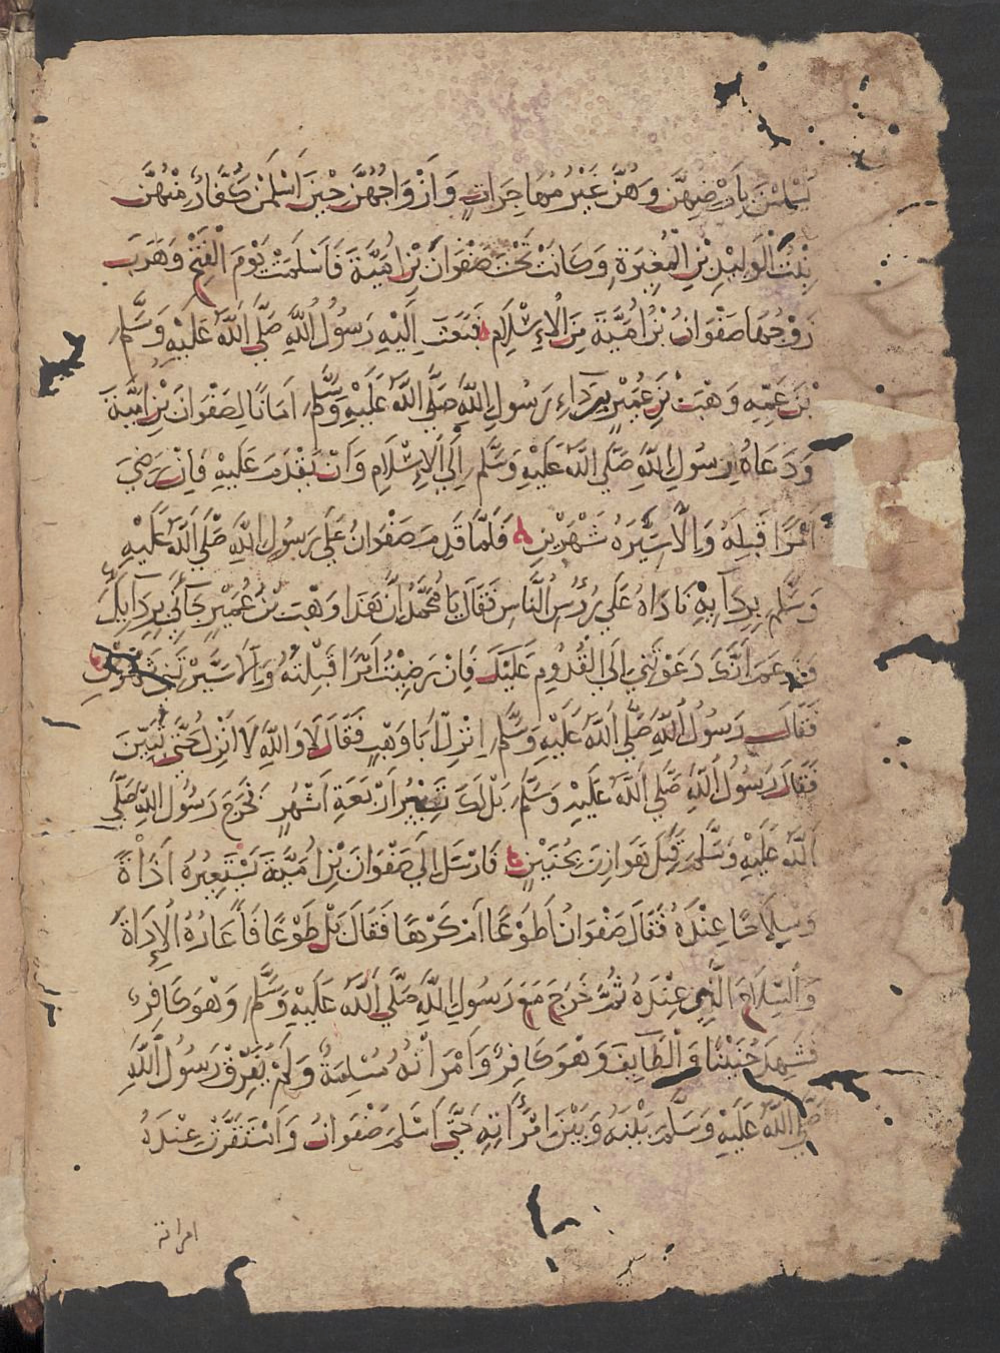 يُسْلِمْنَ بِأَرْضِهِنَّ وَهُنَّ غَيْرُ مُهَاجِرَاتٍ وَأَزْوَاجُهُنَّ حِينَ أَسْلَمْنَ كُفَّارٌ مِنْهُنَّ
بِنْتُ الْوَلِيدِ بْنِ الْمُغِيرَةِ وَكَانَتْ تَحْتَ صَفْوَانَ بْنِ أُمَيَّةَ فَأَسْلَمَتْ يَوْمَ الْفَتْحِ وَهَرَبَ
زَوْجُهَا صَفْوَانُ بْنُ أُمَيَّةَ مِنَ الْإِسْلَامِ فَبَعَثَ إِلَيْهِ رَسُولُ اللَّهِ صَلَّى اللَّهُ عَلَيْهِ وَسَلَّمَ
بْنَ عَمِّهِ وَهْبَ بْنَ عُمَيْرٍ بِرِدَاءِ رَسُولِ اللَّهِ صَلَّى اللَّهُ عَلَيْهِ وَسَلَّمَ أَمَانًا لِصَفْوَانَ بْنِ أُمَيَّةَ
وَدَعَاهُ رَسُولُ اللَّهِ صَلَّى اللَّهُ عَلَيْهِ وَسَلَّمَ إِلَى الْإِسْلَامِ وَأَنْ يَقْدَمَ عَلَيْهِ فَإِنْ رَضِيَ
أَمْرًا قَبِلَهُ وَإِلَّا سَيَّرَهُ شَهْرَيْنِ فَلَمَّا قَدِمَ صَفْوَانُ عَلَى رَسُولِ اللَّهِ صَلَّى اللَّهُ عَلَيْهِ
وَسَلَّمَ بِرِدَآئِهِ نَادَاهُ عَلَى رُءُوسِ النَّاسِ فَقَالَ يَا مُحَمَّدُ إِنَّ هَذَا وَهْبَ بْنَ عُمَيْرٍ جَآءَنِي بِرِدَآئِكَ
وَزَعَمَ أَنَّكَ دَعَوْتَنِي إِلَى الْقُدُومِ عَلَيْكَ فَإِنْ رَضِيْتُ أَمْرًا قَبِلْتُهُ وَإِلَّا سَيَّرْتَنِي شَهْرَيْنِ
فَقَالَ رَسُولُ اللَّهِ صَلَّى اللَّهُ عَلَيْهِ وَسَلَّمَ انْزِلْ أَبَا وَهْبٍ فَقَالَ لَا وَاللَّهِ لَا أَنْزِلُ حَتَّى تُبَيِّنَ
فَقَالَ رَسُولُ اللَّهِ صَلَّى اللَّهُ عَلَيْهِ وَسَلَّمَ بَلْ لَكَ تَسْيِيرُ أَرْبَعَةِ أَشْهُرٍ فَخَرَجَ رَسُولُ اللَّهِ صَلَّى
اللَّهُ عَلَيْهِ وَسَلَّمَ قِبَلَ هَوَازِنَ بِحُنَيْنٍ فَأَرْسَلَ إِلَى صَفْوَانَ بْنِ أُمَيَّةَ يَسْتَعِيرُهُ أَدَاةً
وَسِلَاحًا عِنْدَهُ فَقَالَ صَفْوَانُ أَطَوْعًا أَمْ كَرْهًا فَقَالَ بَلْ طَوْعًا فَأَعَارَهُ الْإِدَاةَ
وَالسِّلَاحَ الَّتِي عِنْدَهُ ثُمَّ خَرَجَ مَعَ رَسُولِ اللَّهِ صَلَّى اللَّهُ عَلَيْهِ وَسَلَّمَ وَهُوَ كَافِرٌ
فَشَهِدَ حُنَيْنًا وَالطَّائِفَ وَهُوَ كَافِرٌ وَامْرَأَتُهُ مُسْلِمَةٌ وَلَمْ يُفَرِّقْ رَسُولُ اللَّهِ
صَلَّى اللَّهُ عَلَيْهِ وَسَلَّمَ بَيْنَهُ وَبَيْنَ امْرَأَتِهِ حَتَّى أَسْلَمَ صَفْوَانُ وَاسْتَقَرَّتْ عِنْدَهُ
امرأته